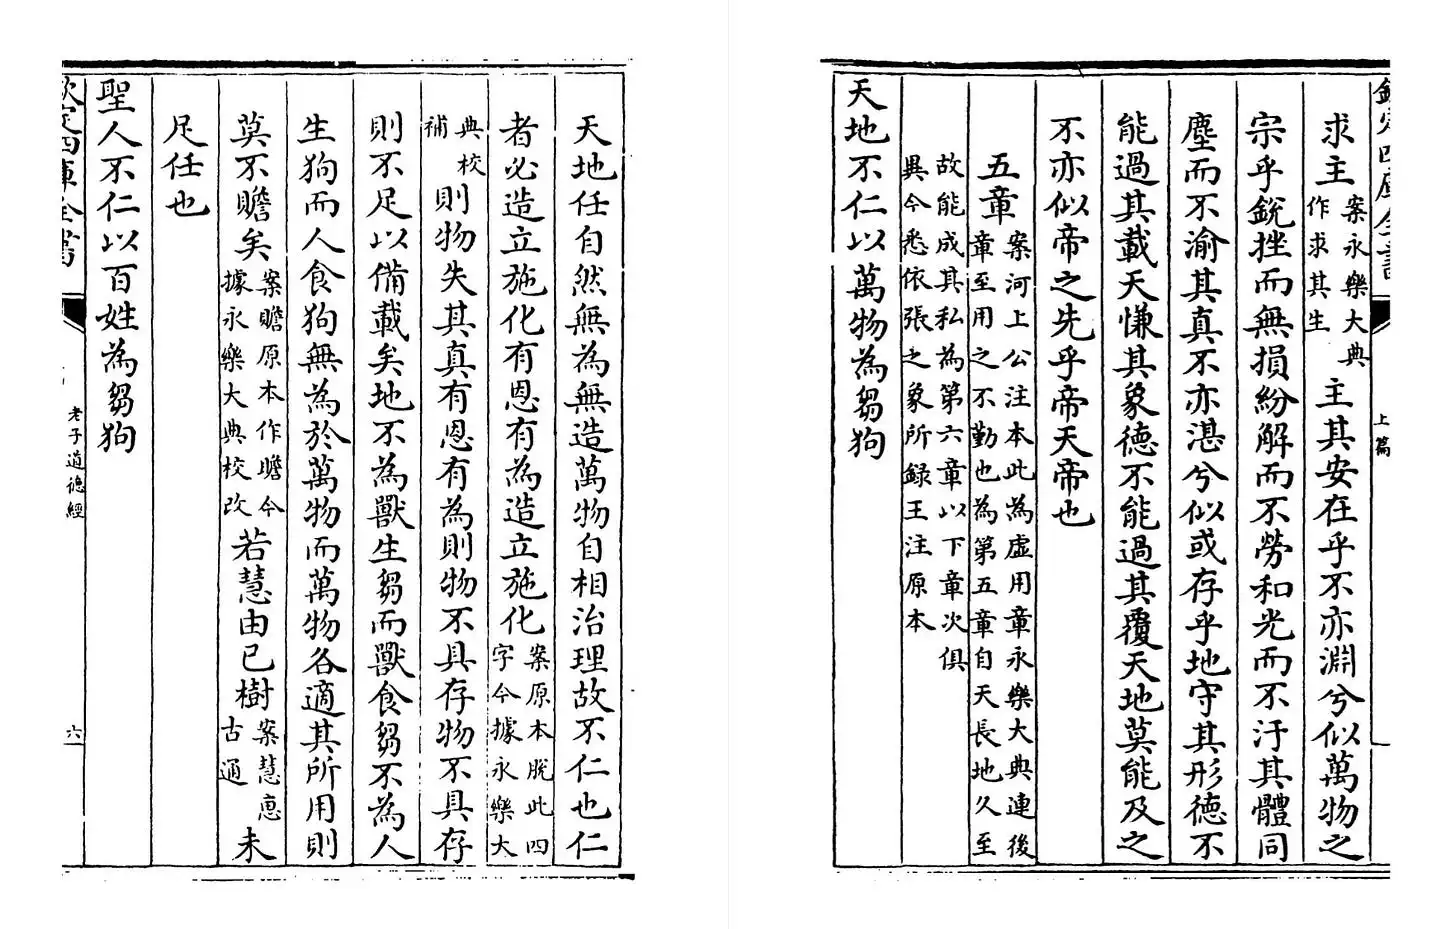 欽定四庫全書
上篇
求主案永樂大典作求其生主其安在乎不亦淵兮似萬物之
宗乎銳挫而無損紛解而不勞和光而不汙其體同
塵而不渝其真不亦湛兮似或存乎地守其形德不
能過其載天慊其象德不能過其覆天地莫能及之
不亦似帝之先乎帝天帝也
五章案河上公注本此為虛用章永樂大典連後章至用之不勤也為第五章自天長地久至
故能成其私為第六章以下章次俱異今悉依張之象所録王注原本
天地不仁以萬物為芻狗
天地任自然無為無造萬物自相治理故不仁也仁
者必造立施化有恩有為造立施化案原本脫此四字今據永樂大
典校補則物失其真有恩有為則物不具存物不具存
則不足以備載矣地不為獸生芻而獸食芻不為人
生狗而人食狗無為於萬物而萬物各適其所用則
莫不贍矣案贍原本作瞻今據永樂大典校改若慧由己樹案慧惠古通未
足任也
聖人不仁以百姓為芻狗
欽定四庫全書
老子道德經
六